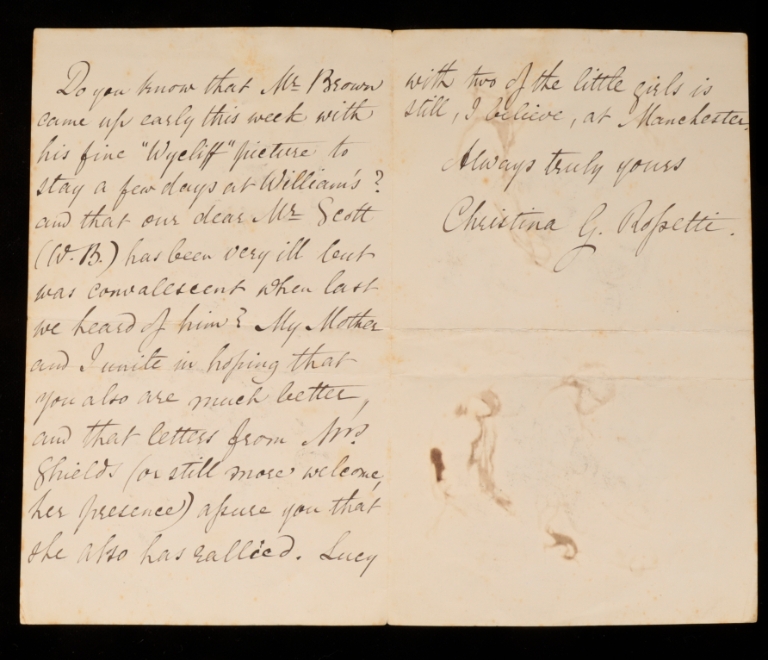 Do you know that Mr Brown
came up early this week with
his fine "Wycliff" picture to
stay a few days at William's?
and that our dear Mr Scott
(W. B.) has been very ill but
was convalescent when last
we heard of him? My Mother
and I unite in hoping that
you also are much better,
and that letters from Mrs
Shields (or still more welcome,
her presence) assure you that
she also has rallied. Lucy
with two of the little girls is
still, I believe, at Manchester.
Always truly yours
Christina G. Rossetti.